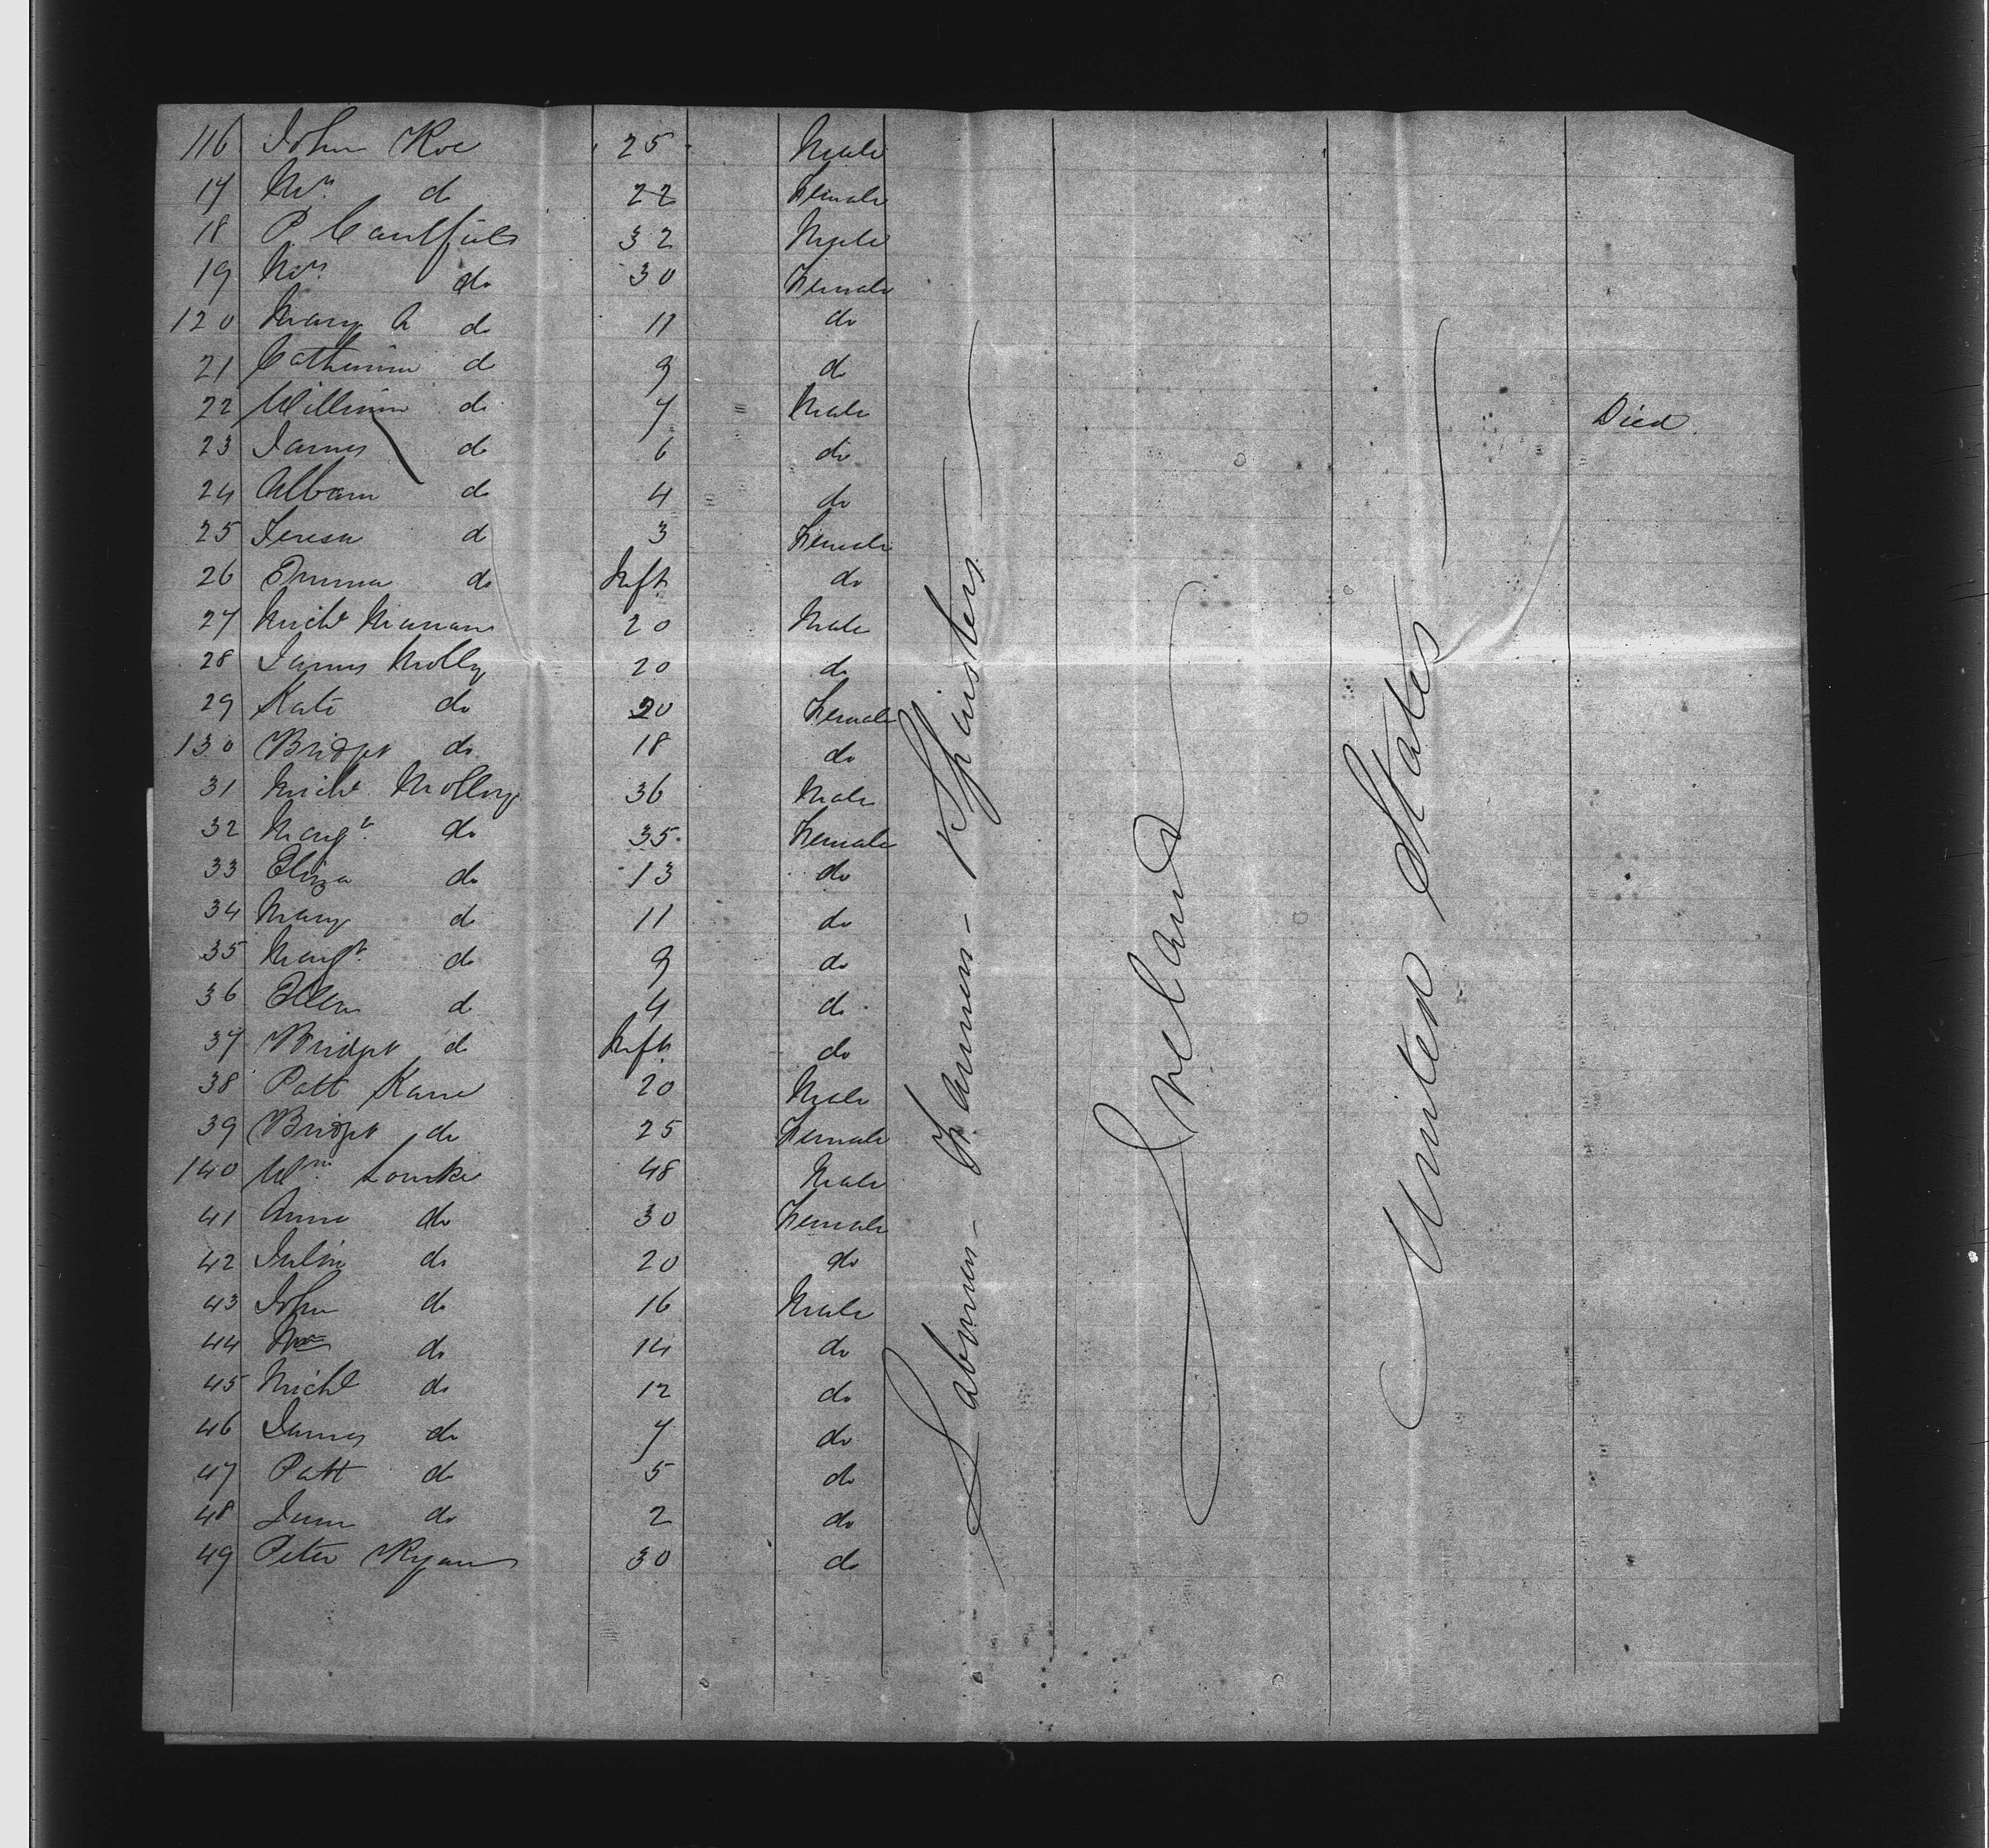 116 John Roe 25 Male
17 Mrs. do 22 Female
18 P. Caulfield 32 Male
19 Mrs. do 30 Female
120 Mary A do 11 do
21 Catherine do 9 do
22 William do 7 Male Died.
23 James do 6 do
24 Alban do 4 do
25 Teresa do 3 Female
26 Emma do Inft do
27 Michl 20 Male
28 James Molloy 20 do
29 Kate do 20 Female
130 Bridget do 18 do
31 Michl Molloy 36 Male
32 Margt. do 35 Female
33 Eliza do 13 do
34 Mary do 11 do
35 Margt. do 9 do
36 Ellen do 4 do
37 Bridget do Inft. do
38 Patt Kane 20 Male
39 Bridget do 25 Female
140 Wm. Lourke 48 Male
41 Anne do 30 Female
42 Julia do 20 do
43 John do 16 Male
44 Wm do 14 do
45 Michl do 12 do
46 James do 7 do
47 Patt do 5 do
48 do 2 do
49 Peter Ryan 30 do
Labourers - Farmers - Spinsters
Ireland
United States